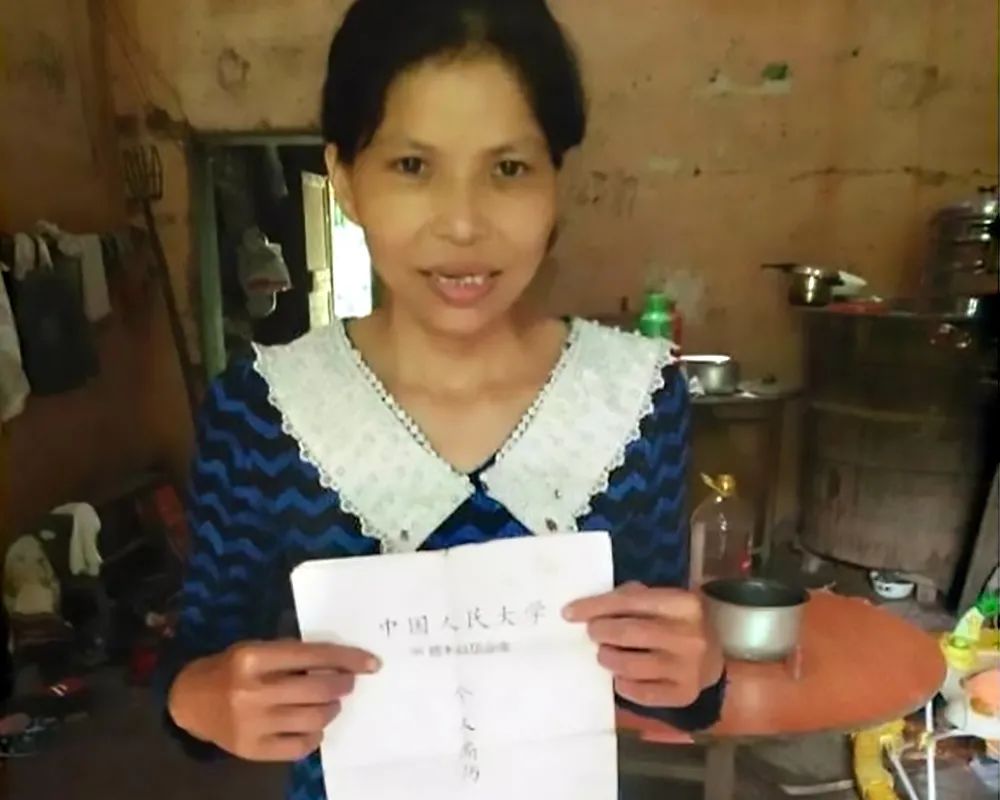 中国人民大学
个人简历